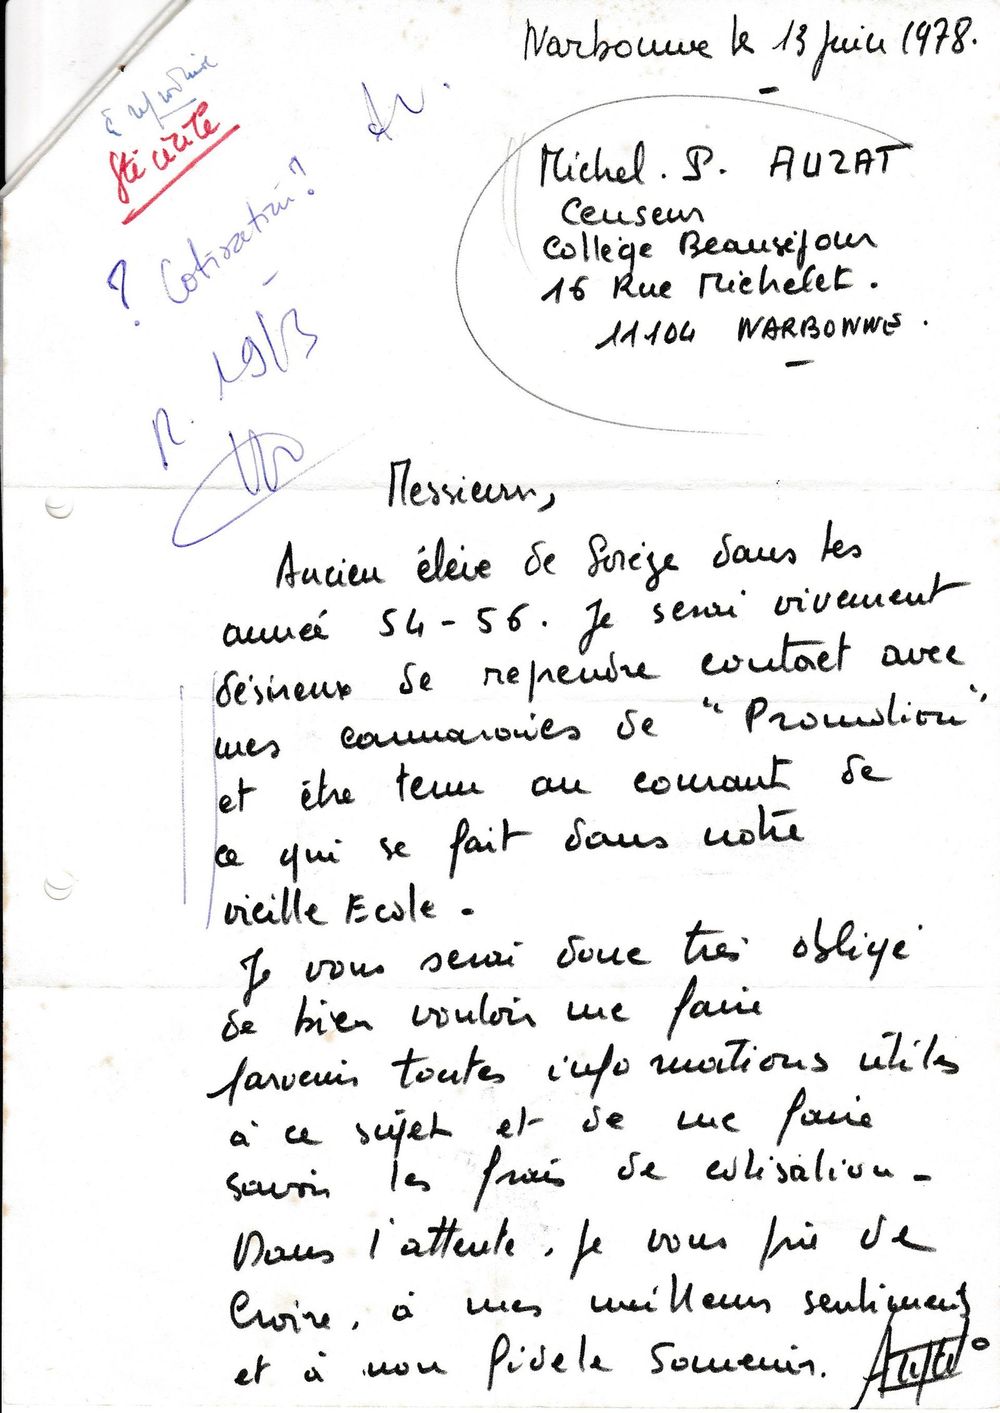 Narbonne le 13 Juin 1978.
à reproduire
Sté cérité
? Cotisation?
R. 19/3
Michel. P. AUZAT
Censeur
Collège Beauséjour
16 Rue Michelet.
11104 NARBONNE.
Messieurs,
Ancien élève de Sorèze dans les
année 54-56. Je serai vivement
désireux de reprendre contact avec
mes camarades de "Promotion"
et être tenu au courant de
ce qui se fait dans notre
vieille Ecole.
Je vous serai donc très obligé
de bien vouloir me faire
parvenir toutes informations utiles
à ce sujet et de me faire
savoir les frais de cotisation-
Dans l'attente, je vous prie de
Croire, à mes meilleurs sentiments
et à mon fidèle Souvenir.